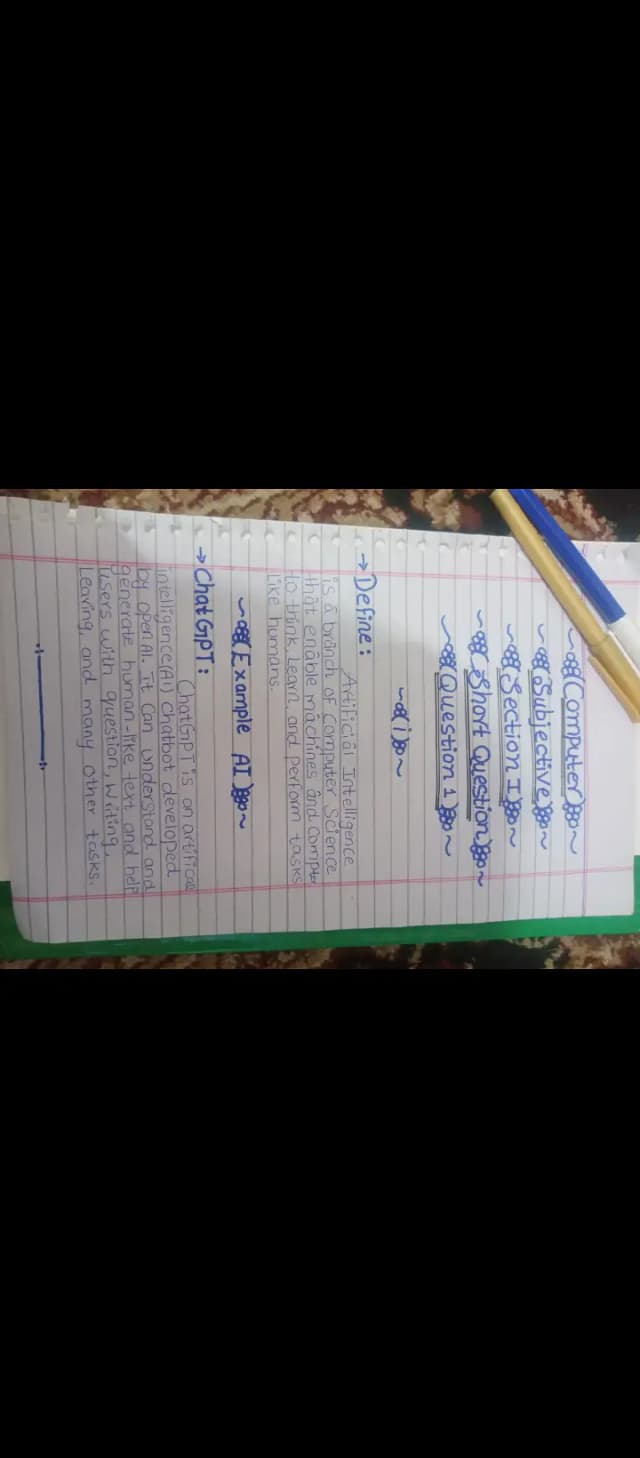 Computer
Subjective
Section I
Short Question
Question 1
(i)
→ Define:
Artificial Intelligence
is a branch of Computer Science
that enable machines and Compter
to think, Learn, and perform tasks
like humans.
(Example AI)
→ ChatGPT:
ChatGPT is an artifical
intelligence(AI) chatbot developed
by openAI. it Can understand and
generate human-like text and help
users with question, writing,
Learing, and many other tasks.